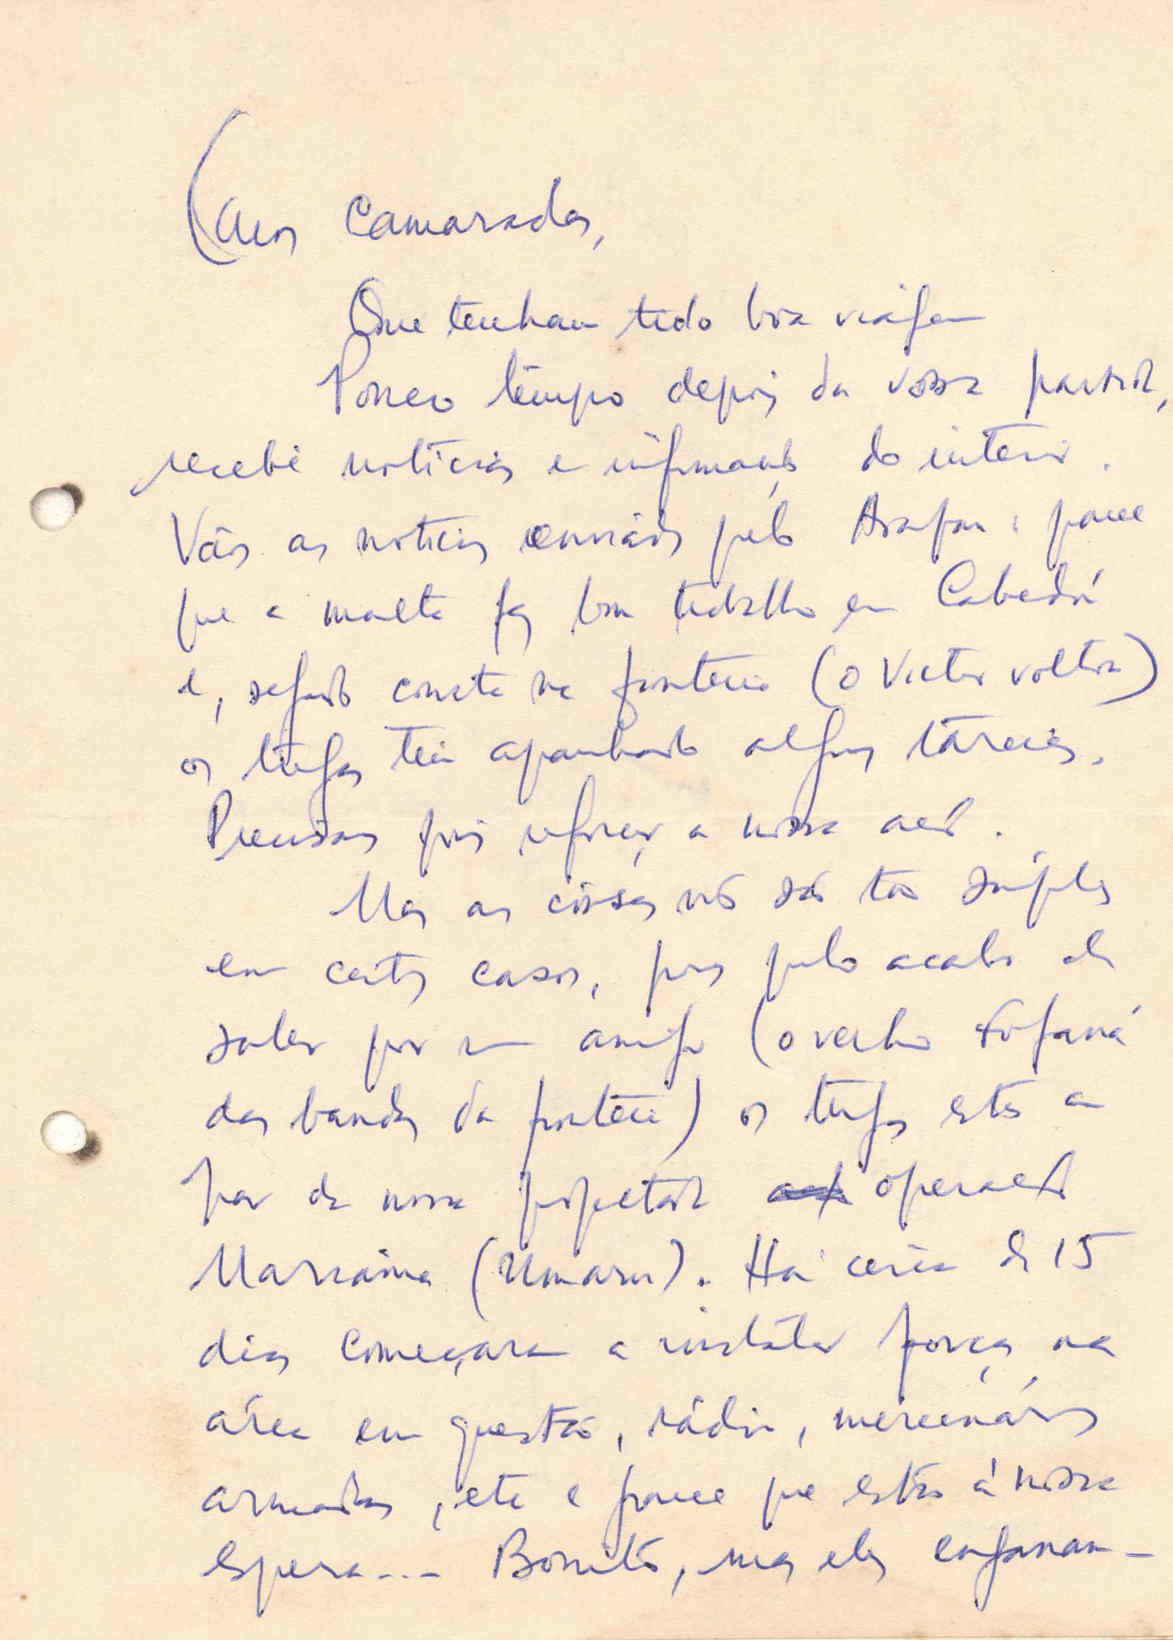 Caros Camaradas,
Que tenham tido boa viagem
Pouco tempo depois da vossa partida,
recebi notícias e informações do interior.
Vão as notícias enviadas pelo : parece
que a malta fez bom trabalho em Cabedú
e, segundo consta na fronteira (o Victor voltou)
os tugas têm apanhado algumas tareias.
Precisamos pois reforçar a nossa acção.
Mas as coisas não são tão simples
em certos casos, pois pelo acabo de
saber por um amigo (o velho Fofaná
das bandas da fronteira) os tugas estão a
par da nossa projectada operação
(Umaru). Há cerca de 15
dias começaram a instalar forças na
área em questão, rádio, mercenários
armados, etc e parece que estão à nossa
espera... Bonito, mas eles enganam-